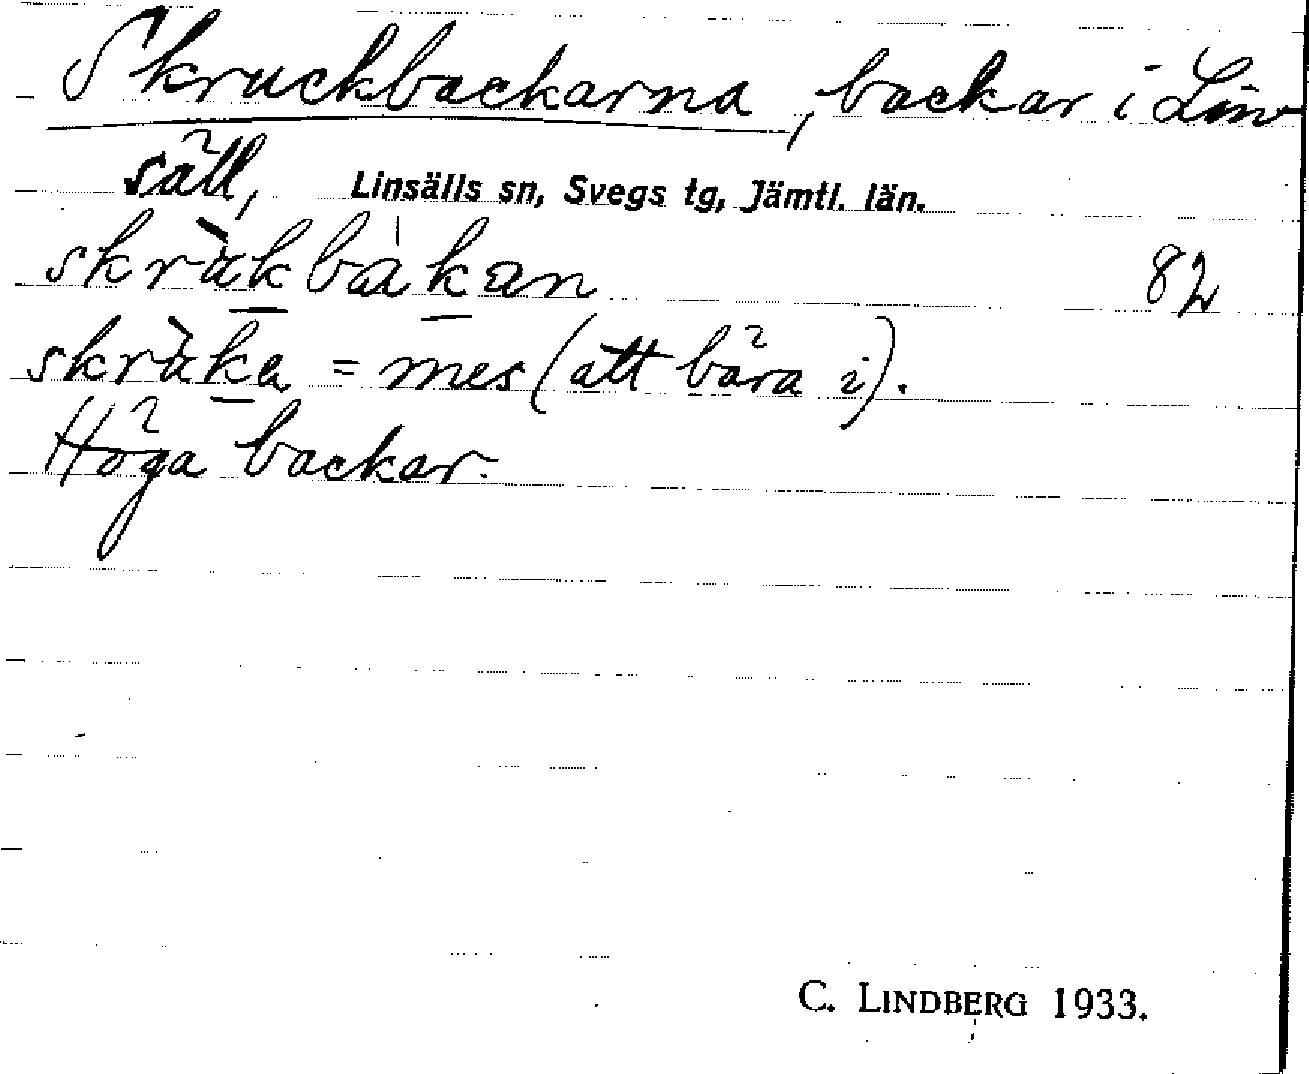 Skruckbackarna, backar i Lin-
säll, Linsälls sn, Svegs tg, Jämtl. län.
skràkbakan 82
skràka = mes (att bära i).
Höga backar.
C. LINDBERG 1933.